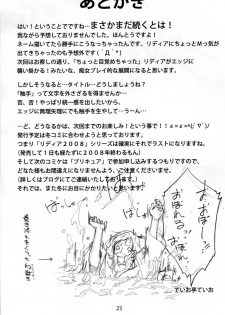 あとがき
はい！ということでですね、まさかまだ続くとは！
我ながら予想外でした。ほんとうですよ！
ネーム描いてたら勝手にこうなっちゃったんです。リディアにちょっとM っ気が
出てきちゃったのも予想外です（´Д｀）
次回はお察しの通り、「ちょっと目覚めちゃった」リディアがエッジに
襲い掛かる！みたいな、痴女プレイ的な内容になるかと思われます。
それにしても…タイトル…どうしましょうね？
「触手」って文字を外さざるを得ませんが…
否、否！やっぱり続一感を出したいから、
エッジに無理矢理にでも触手を生やして…うーん…
…と、どうなるかは、次回までのお楽しみ！という事で！！
発行予定は冬コミに合わせようかと思っています。
つまり「リディア2008」シリーズは確実にそれでラストになりますね。
（発売して1日も経たずに2008年終わるもん）
そして次のコミケは「プリキュア」で参加申し込みするつもりですので、
どなた様もお間違えになりませんよう、ご注意くださいませ。
（詳しくはブログにてご連絡いたしております。）
それでは、また冬にお目にかかれたらと思います！
おぼれる
おぼれる
ていお亭ていお
23